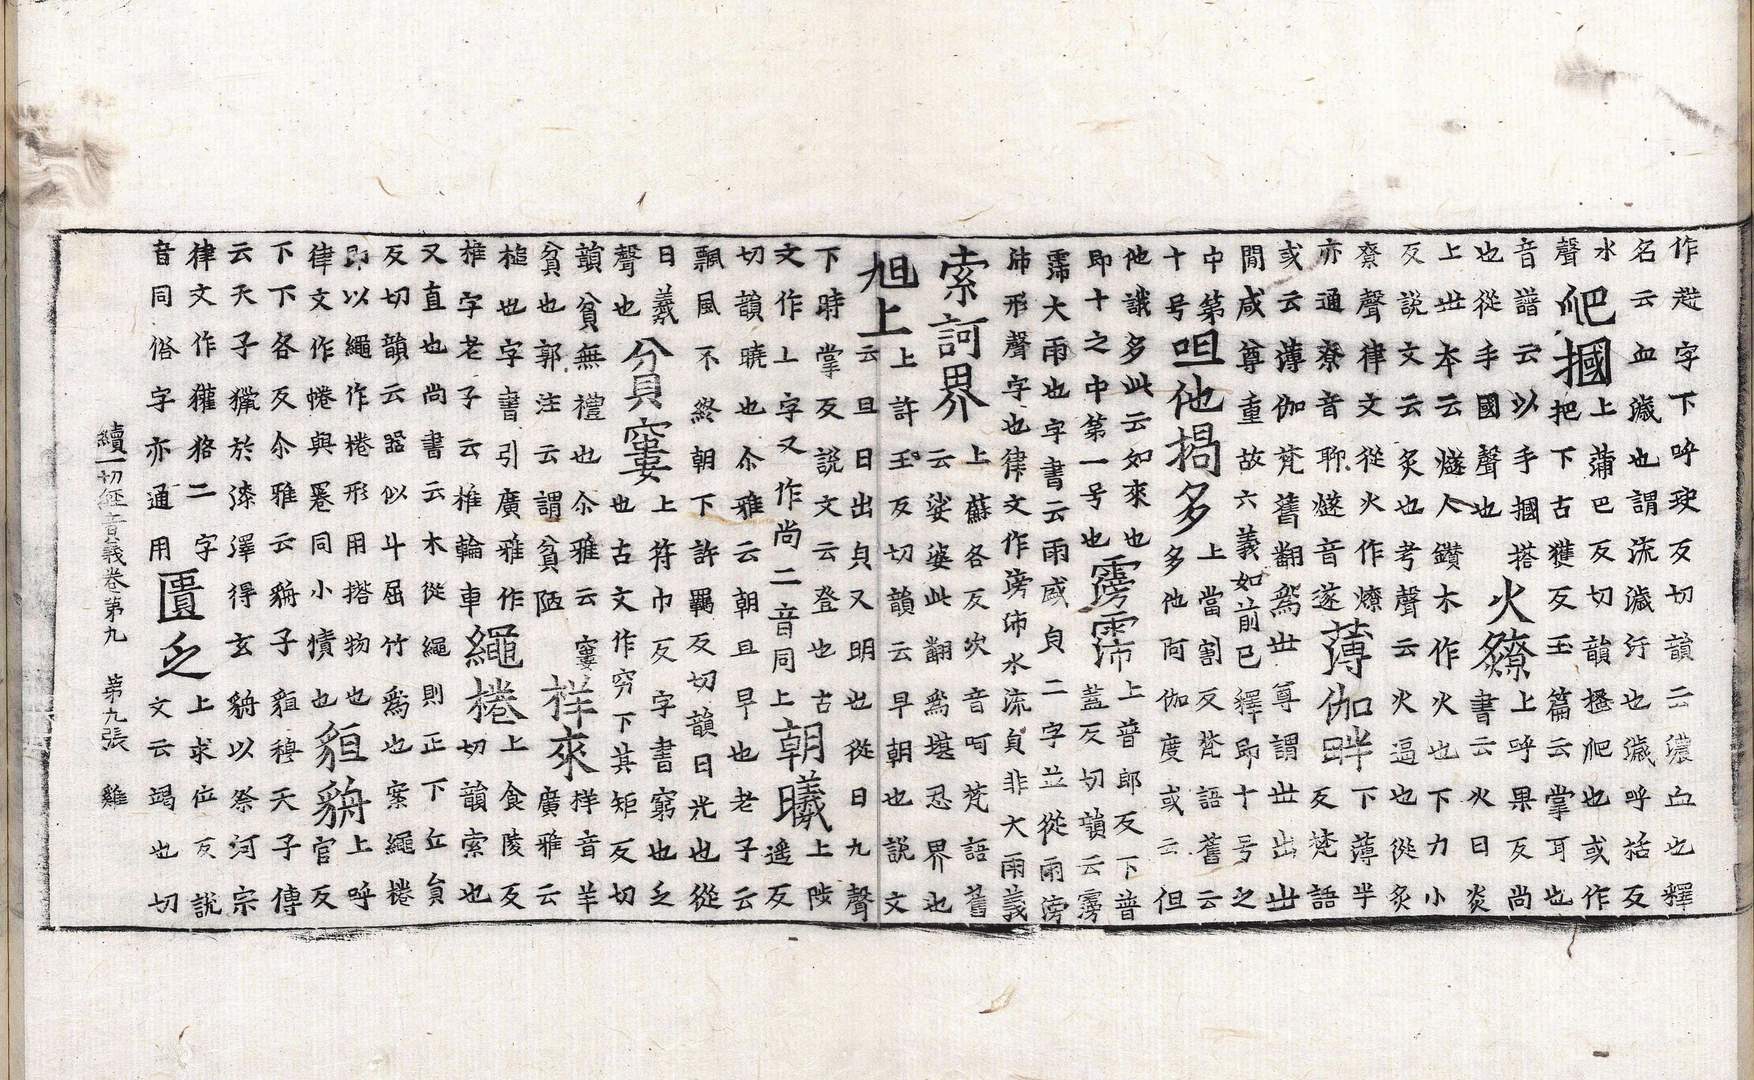 作𧻓字下呼玦反切韻云濃血也釋
名云血濊也謂流濊行也濊呼括反
水
聲
爬摑
上蒲巴反切韻搔爬也或作
把下古獲反玉篇云掌耳也
音譜云以手摑搭
也從手國聲也
火尞
上呼果反尚
書云火曰炎
上世本云燧人鑽木作火也下力小
反說文云炙也考聲云火逼也從炙
尞聲律文從火作燎
亦通尞音聊燧音遂
薄伽畔
下薄半
反梵語
或云薄伽梵舊翻爲世尊謂世出世
間咸尊重故六義如前已釋即十号之
中第
十号
呾他揭多
上當割反梵語舊云
多他阿伽度或云但
他誐多此云如來也
即十之中第一号也
霶霈
上普郎反下普
蓋反切韻云霶
霈大雨也字書云雨盛皃二字並從雨滂
沛形聲字也律文作滂沛水流皃非大雨義
索訶界
上蘇各反次音呵梵語舊
云娑婆此翻爲堪忍界也
旭上
上許玉反切韻云早朝也說文
云旦日出皃又明也從日九聲
下時掌反說文云登也古
文作丄字又作尚二音同上
朝曦
上陟
遥反
切韻曉也尒雅云朝旦早也老子云
飄風不終朝下許羈反切韻日光也從
日羲
聲也
貧窶
上符巾反字書窮也乏
也古文作穷下其矩反切
韻貧無禮也尒雅云窶
貧也郭注云謂貧陋
样來
样音羊
廣雅云
槌也字書引廣雅作
椎字老子云椎輪車
繩棬
上食陵反
切韻索也
又直也尚書云木從繩則正下丘員
反切韻云器似斗屈竹爲也案繩棬
即以繩作棬形用搭物也
律文作惓與罤同小憒也
貆貈
上呼
官反
下下各反尒雅云貈子貆穆天子傳
云天子獵於漆澤得玄貈以祭河宗
律文作獾狢二字
音同俗字亦通用
匱乏
上求位反說
文云竭也切
續一切經音義卷第九 第九張 雞